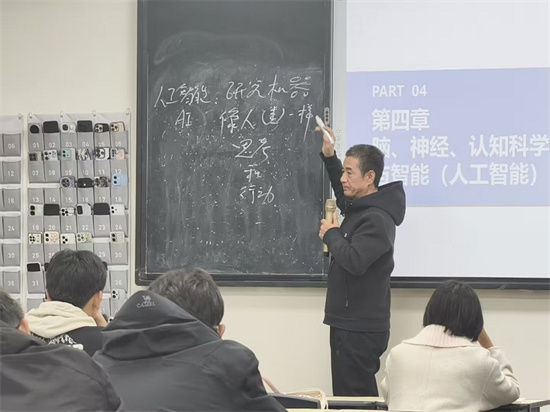 人工智能：研究机器
AI 像人(类)一样
思考
和
行动
PART 04
第四章
脑、神经、认知科学
智能（人工智能）
06